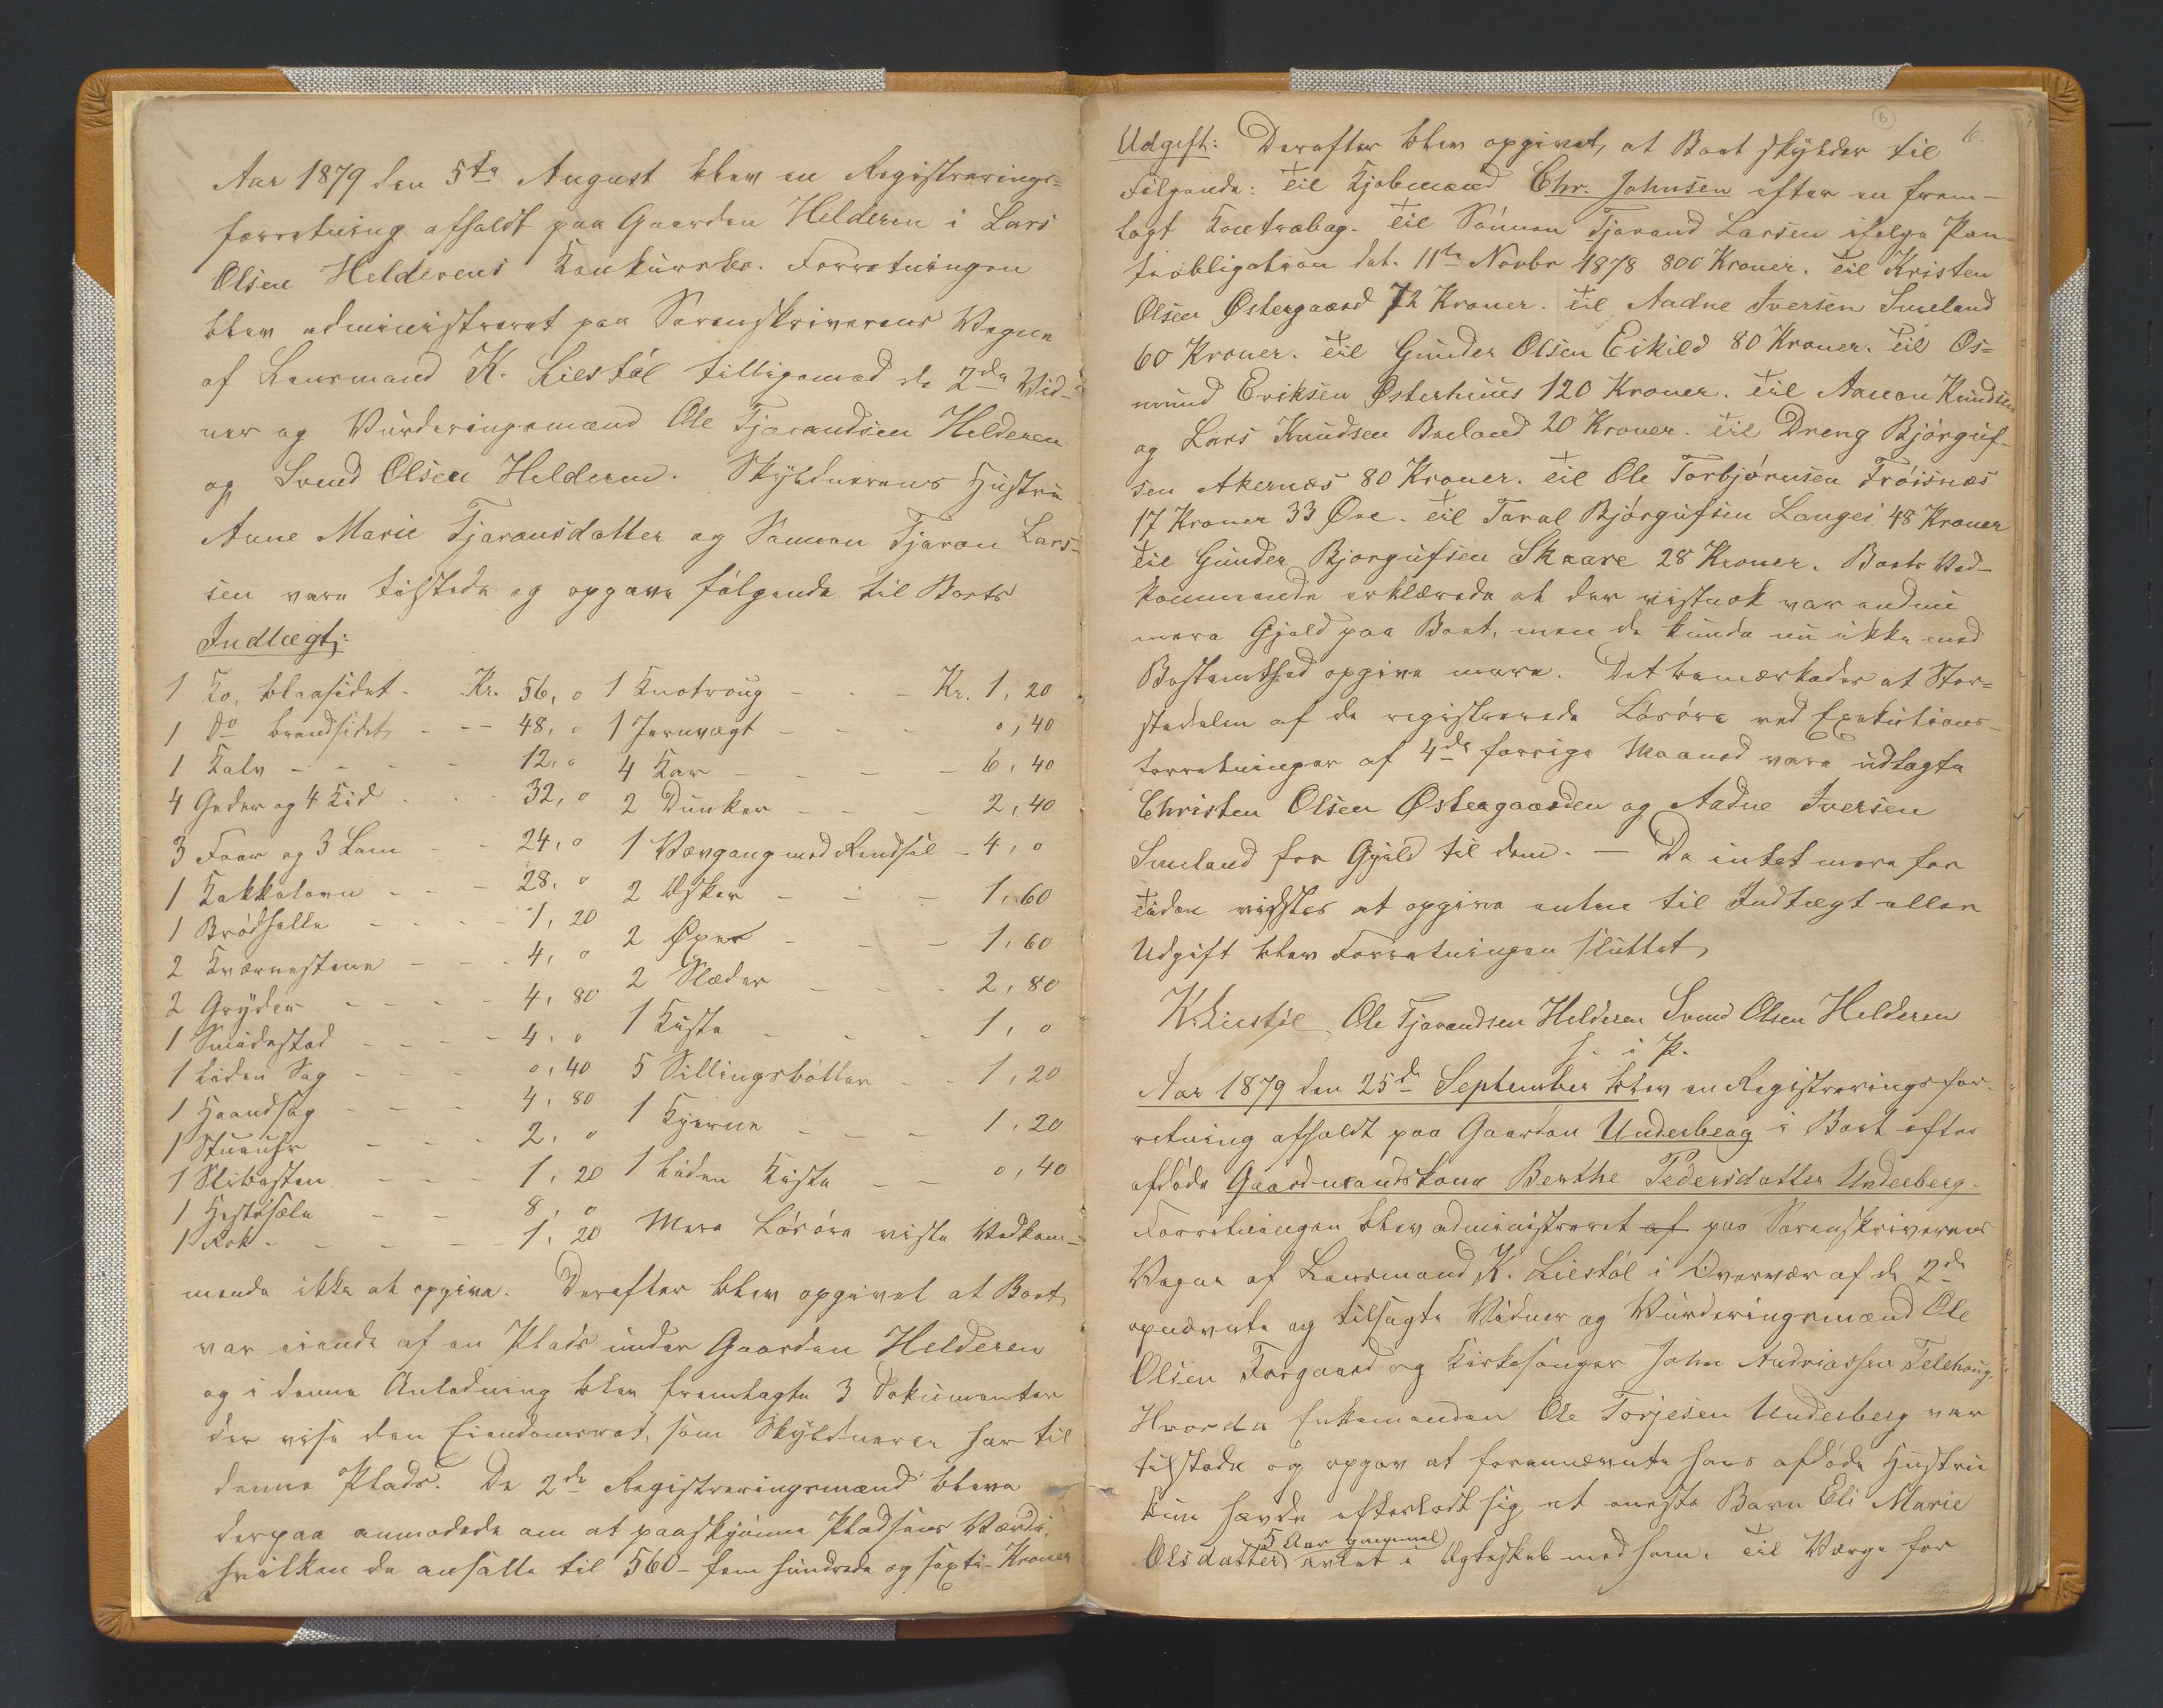 Aar 1879 den 5te August blev en Registrerings=
forretning afholdt paa Gaarden Helderen i Lars
Olsen Helderens Konkursbo. Forretningen
blev administreret paa Sorenskriverens Vegne
af Lensmand K. Liestøl tilligemed de 2de Vid-
ner og Vurderingsmænd Ole Tjørandsen Helderen
og Svend Olsen Helderen. Skyldnerens Hustru
Anne Marie Tjøransdatter og Sønnen Tjøran Lars=
sen vare tilstede og opgave følgende til Boets
Indtægt:
1 Ko, blaasidet - Kr. 56, 0
1 Do brandsidet - - 48, 0
1 Kalv - - - - 12, 0
4 Geder og 4 Kid - - 32, 0
3 Faar og 3 Lam - - 24, 0
1 Kakkelovn - - - 28, 0
1 Brødhelle - - - 1, 20
2 Kværnestene - - - 4, 0
2 Gryder - - - - 4, 80
1 Smidestad - - - - 4, 0
1 liden Sag - - - 0, 40
1 Haandsag - - - 4, 80
1 Stueuhr - - - 2, 0
1 Slibesten - - - 1, 20
1 Hestesele - - 8, 0
1 Rok - - - - 1, 20
1 Knottroug - - - Kr. 1, 20
1 Jernvægt - - - 0, 40
4 Kar - - - - 6, 40
2 Dunker - - - 2, 40
1 Vævgang med Rendsel - 4, 0
2 Æsker - - - 1, 60
2 Øxer - - - 1, 60
2 Slæder - - - 2, 80
1 Kiste - - - 1, 0
5 Sillingsbøtter - - 1, 20
1 Kjerne - - - 1, 20
1 liden Kiste - - 0, 40
Mere Løsøre viste Vedkom=
mende ikke at opgive. Derefter blev opgivet at Boet
var eiende af en Plads under Gaarden Helderen
og i denne Anledning blev fremlagte 3 Dokumenter
der vise den Eiendomsret, som Skyldneren har til
denne Plads. De 2de Registreringsmænd bleve
derpaa anmodede om at paaskjønne Pladsens Værdi,
hvilken de ansatte til 560 - fem hundrede og sexti - Kroner
6 6.
Udgift: Derefter blev opgivet, at Boet skylder til
Følgende: Til Kjøbmand Chr. Johnsen efter en frem-
lagt Kontrabog. Til Sønnen Tjørand Larsen ifølge Pan-
teobligation dat. 11te Novbr 1878 800 Kroner. Til Kristen
Olsen Østergaard 72 Kroner. Til Aadne Iversen Smeland
60 Kroner. Til Gunder Olsen Eikild 80 Kroner. Til Os=
mund Eriksen Østerhuus 120 Kroner. Til Aanon Knudsen
og Lars Knudsen Breland 20 Kroner. Til Dreng Bjørguf-
sen Akernæs 80 Kroner. Til Ole Torbjørnsen Frøisnæs
17 Kroner 33 Øre. Til Taral Bjørgufsen Langei 48 Kroner
Til Gunder Bjorgufsen Skaare 28 Kroner. Boets Ved-
kommende erklærede at der vistnok var endnu
mere Gjæld paa Boet, men de kunde nu ikke med
Bestemthed opgive mere. Det bemærkedes at Stør=
stedelen af de registrerede Løsøre ved Exekutions-
forretninger af 4de forrige Maaned vare udlagte
Christen Olsen Østergaarden og Aadne Iversen
Smeland for Gjæld til dem. - Da intet mere for
Tiden vidstes at opgive enten til Indtægt eller
Udgift blev Forretningen sluttet,
K. Liestøl Ole Tjørandsen Helderen Svend Olsen Helderen
h. i P.
Aar 1879 den 25de September blev en Registreringsfor-
retning afholdt paa Gaarden Underberg i Boet efter
afdøde Gaardmandskone Berthe Pedersdatter Underberg.
Forretningen blev administreret af paa Sorenskriverens
Vegne af Lensmand K. Liestøl i Overvær af de 2de
opnævnte og tilsagte Vidner og Vurderingsmænd Ole
Olsen Forgaard og Kirkesanger John Andriassen Felehoug,
Hvorda Enkemanden Ole Torjesen Underberg var
tilstede og opgav at forannævnte hans afdøde Hustru
kun havde efterladt sig et eneste Barn Eli Marie
Olsdatter 5 Aar gammel avlet i Ægteskab med ham. Til Værge for